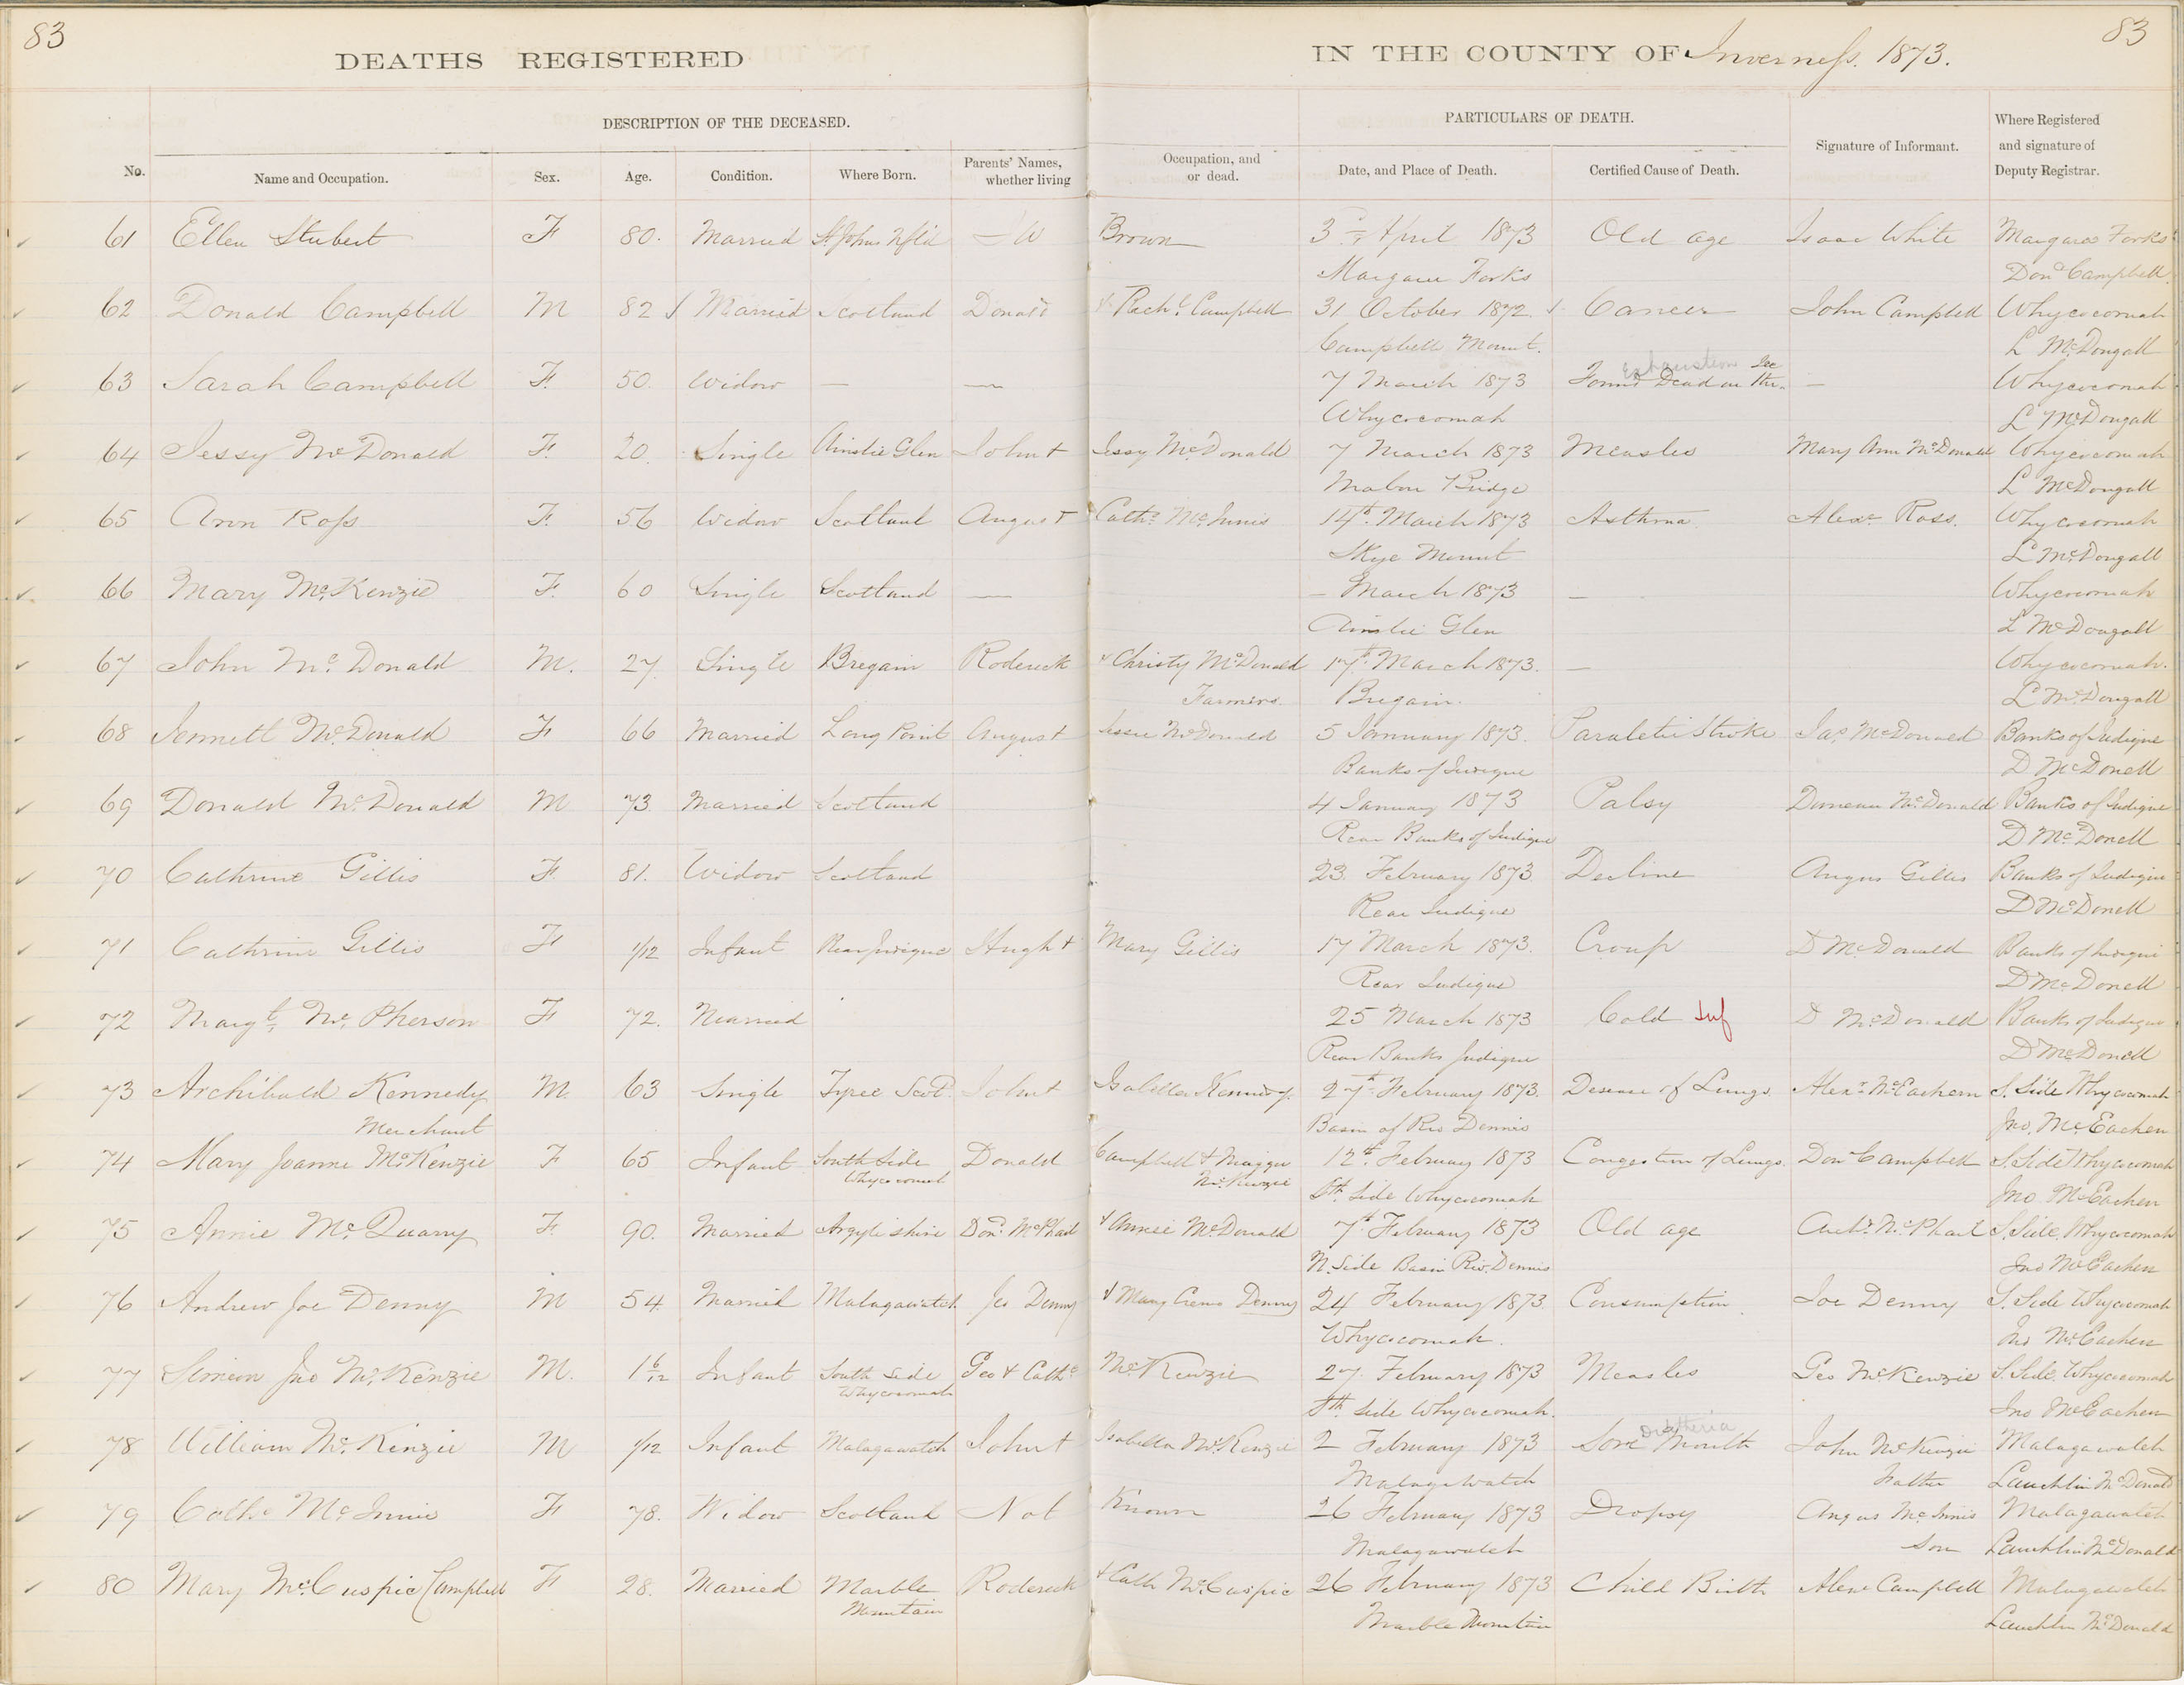 83
83
DEATHS REGISTERED IN THE COUNTY OF Inverness. 1873.
DESCRIPTION OF THE DECEASED.
PARTICULARS OF DEATH.
Where Registered and signature of Deputy Registrar.
Signature of Informant.
No. Name and Occupation. Sex. Age. Condition. Where Born. Parents' Names, whether living Occupation, and or dead. Date, and Place of Death. Certified Cause of Death.
61 Ellen Stubert F 80. Married St Johns Nfld W Brown 3 April 1873 Old age Isaac White Margaree Forks
Margaree Forks Don Campbell
62 Donald Campbell M 82 Married Scotland Donald + Rachl Campbell 31 October 1872 Cancer John Campbell Whycocomah
Campbells Mount. L McDougall
exhaustion Ice
63 Sarah Campbell F. 50. Widow — — 7 March 1873 Found Dead on the — Whycocomah
Whycocomah L McDougall
64 Jessy McDonald F. 20. Single Ainslie Glen John + Jessy McDonald 7 March 1873 Measles Mary Ann McDonald Whycocomah
Mabou Bridge L McDougall
65 Ann Ross F. 56 Widow Scotland Angus + Cathe McInnis 14th March 1873 Asthma Alexr Ross. Whycocomah
Skye Mount L McDougall
66 Mary McKenzie F. 60 Single Scotland — — March 1873 — Whycocomah
Ainslie Glen L McDougall
67 John McDonald M. 27 Single Bregain Roderick + Christy McDonald 17th March 1873. — Whycocomah.
Farmers. Bregain. L McDougall
68 Jennett McDonald F 66 Married Long Point Angus + Jessie McDonald 5 January 1873. Paraletic Stroke Jas McDonald Banks of Judique
Banks of Judique D McDonell
69 Donald McDonald M 73 Married Scotland 4 January 1873 Palsy Duncan McDonald Banks of Judique
Rear Banks of Judique D McDonell
70 Cathrine Gillis F 81. Widow Scotland 23. February 1873. Decline Angus Gillis Banks of Judique
Rear Judique D McDonell
71 Cathrine Gillis F 1/12 Infant Rear Judique Hugh + Mary Gillis 17 March 1873. Croup D McDonald Banks of Judique
Rear Judique D McDonell
72 Margt McPherson F 72. Married 25 March 1873 Cold D McDonald Banks of Judique
Rear Banks Judique D McDonell
73 Archibald Kennedy M. 63 Single Tyree Scotd John + Isabella Kennedy. 27th February 1873. Desease of Lungs. Alexr McEachern S. Side Whycocomah
Merchant Basin of Riv Dennis Jno. McEachen
74 Mary Joanne McKenzie F 65 Infant South Side Donald Campbell + Maggie 12th February 1873 Congestion of Lungs. Don Campbell S. Side Whycocomah
Whycocomah McKenzie Sth. Side Whycocomah Jno. McEachen
75 Annie McQuarry F. 90. Married Argyle shire Dond McPhail + Annie McDonald 7th February 1873 Old age Archd McPhail S. Side Whycocomah
N. Side Basin Riv. Dennis Jno McEachen
76 Andrew Joe Denny M 54 Married Malagawatch Jos Denny + Mary Denny 24 February 1873 Consumption Joe Denny S. Side Whycocomah
Whycocomah. Jno McEachen
77 Simeon Jno McKenzie M. 1 6/12 Infant South Side Geo + Cathe McKenzie 27 February 1873 Measles Geo McKenzie S. Side Whycocomah
Whycocomah Sth. Side Whycocomah. Jno McEachen
78 William McKenzie M 1/12 Infant Malagawatch John + Isabella McKenzie 2 February 1873 Sore Mouth John McKenzie Malagawatch
Malagawatch Father Lauchlin McDonald
79 Cathe McInnis F 78. Widow Scotland Not Known 26 February 1873 Dropsy Angus McInnis Malagawatch
Malagawatch Son Lauchlin McDonald
80 Mary McCuspic Campbell F 28. Married Marble Roderick + Cath McCuspic 26 February 1873 Child Birth Alexr Campbell Malagawatch
Mountain Marble Mountain Lauchlin McDonald